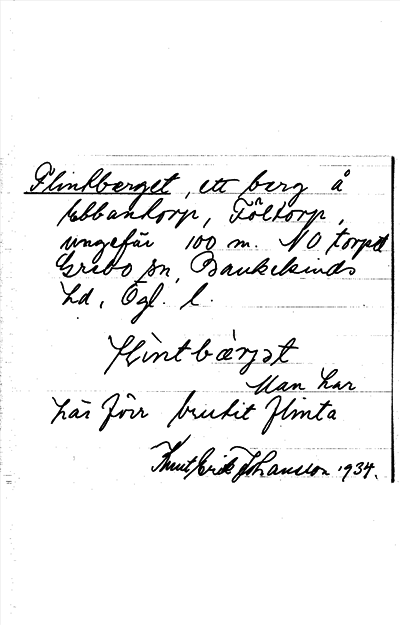 Flintberget, ett berg å
Ebbantorp, Föltorp,
ungefär 100 m. NO torpet
Grebo sn, Bankekinds
hd, Ögl. l.
flìntbær̀jət
Man har
här förr brutit flinta
Knut Erik Johansson 1934.